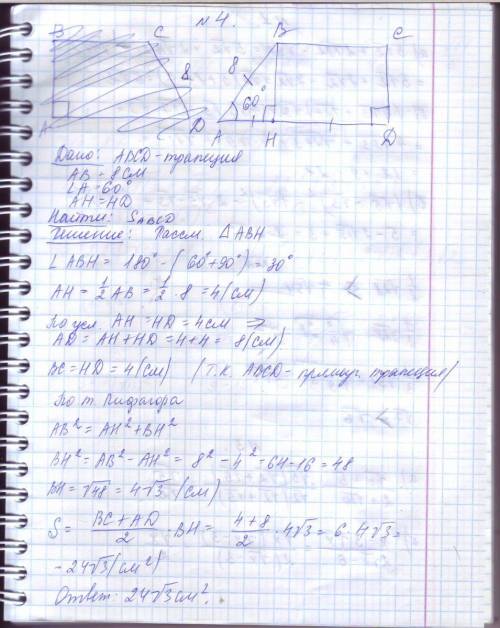 №4.
B C B C
8 8
60°
A D A H D
Дано: ABCD - трапеция
AB = 8 см
∠A = 60°
AH = HD
Найти: S ABCD
Решение: Рассм. △ABH
∠ABH = 180° - (60° + 90°) = 30°
AH = 1/2 AB = 1/2 · 8 = 4 (см)
По усл. AH = HD = 4 см ⇒
AD = AH + HD = 4 + 4 = 8 (см)
BC = HD = 4 (см) (т.к. ABCD - прямоуг. трапеция)
По т. Пифагора
AB² = AH² + BH²
BH² = AB² - AH² = 8² - 4² = 64 - 16 = 48
BH = √48 = 4√3 (см)
S = (BC + AD)/2 · BH = (4 + 8)/2 · 4√3 = 6 · 4√3 =
- 24√3 (см²)
Ответ: 24√3 см².